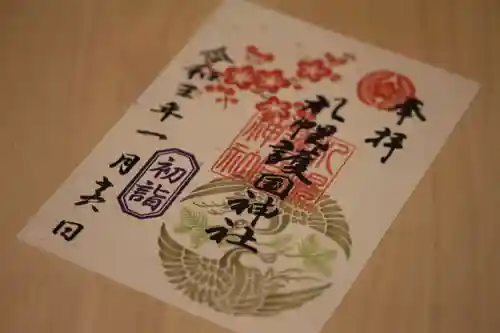 奉拝
札幌護国神社
初詣
令和五年一月六日